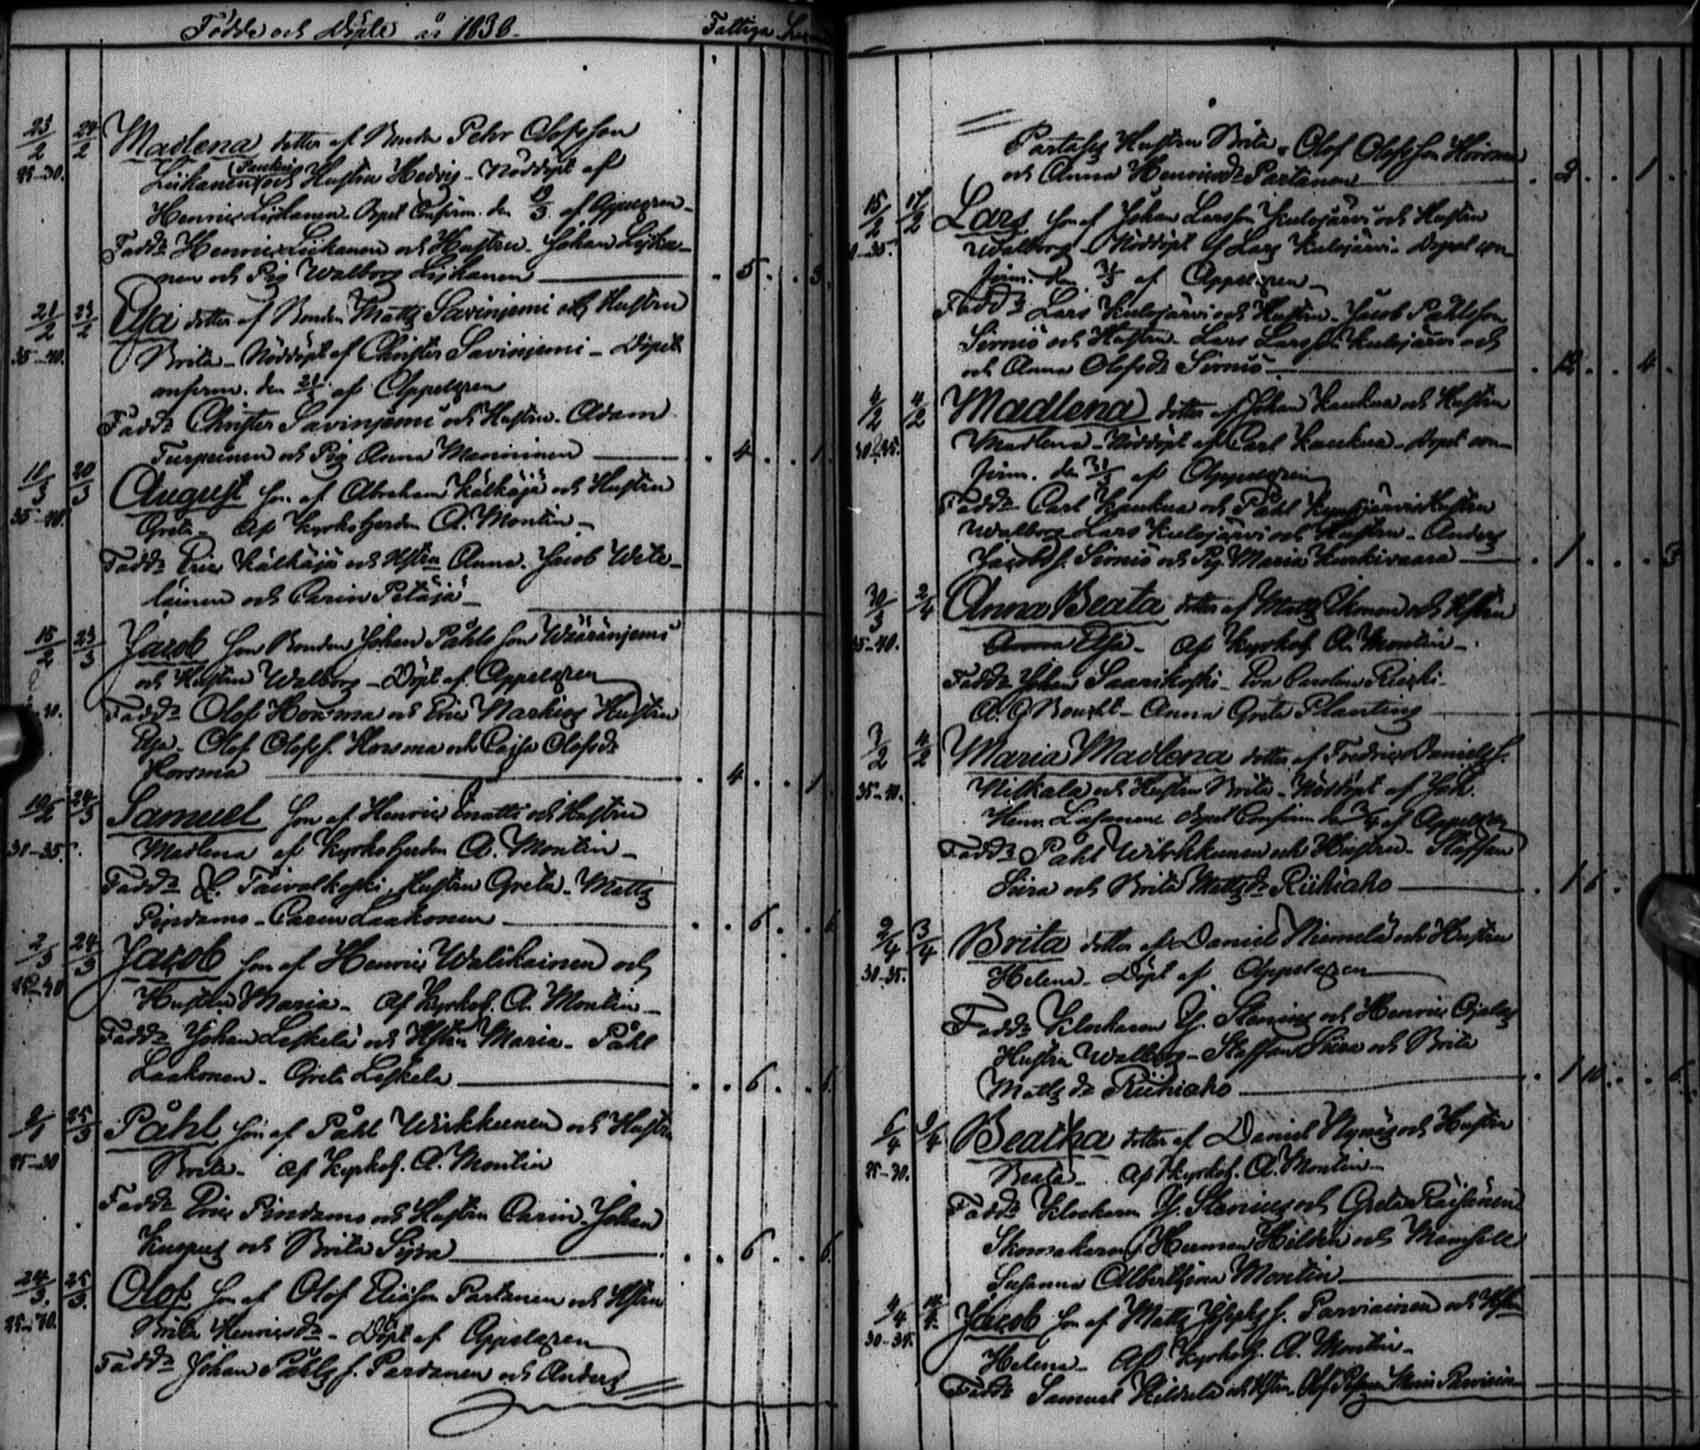 Födde och Döpte år 1836.
Fattiga
23/2 24/2 Madlena dotter af Bonden Pehr Olofsson
25-30. Liikanen och Hustru Hedvig - Nöddöpt af
Henric Liikanen. Dopet Confirm. den 19/3 af Appelgren -
Fadd: Henric Liikanen och Hustru - Johan Lijka-
nen och Pig Walborg Lijkanen . 5 . . 3.
21/2 23/2 Elsa dotter af Bonden Matts Savinjemi och Hustru
35-40. Brita - Nöddöpt af Christer Savinjemi - Dopet
confirm. den af Appelgren
Fadd: Christer Savinjemi och Hustru. Adam
Turpeinen och Pig Anna Manninen . 4 . . 1.
20/3 August son af Abraham Kälkäjä och Hustru
35-40. Greta - af Kyrkoherden A. Montin -
Fadd: Eric Kälkäjä och Hstru Anna. Jacob Wete-
läinen och Carin Petäjä -
15/2 23/3 Jacob son Bonden Johan Påhls son Wääränjemi
och Hustru Walborg - Döpt af Appelgren
Fadd: Olof Horsma och Eric Markus Hustru
Elsa - Olof Olofss. Horsma och Cajsa Olofsdr
Horsma . 4 . . 1.
24/3 Samuel son af Henric Enatti och Hustru
30-35. Madlena af Kyrkoherden A. Montin -
Fadd: Taivalkoski, Hustru Greta - Matts
Pindamo - Carin Laakonen . . 6 . . 6
2/3 24/3 Jacob son af Henric Walikainen och
Hustru Maria - Af Kyrkoh. A. Montin -
Fadd: Johan Leskelä och Hstru Maria - Påhl
Laakonen - Greta Leskelä . . 6 . . 6.
25/3 Påhl son af Påhl Wirkkunen och Hustru
25-30 Brita - af Kyrkoh. A. Montin
Fadd: Eric Pindamo och Hustru Carin. Johan
och Brita Sijra . . 6 . . 6.
24/3. 25/3. Olof son af Olof Ericsson Partanen och Hstru
Brita Henricsdr - Döpt af Appelgren
Fadd: Johan Påhls s. Partanen och Anders
Partanes Hustru Brita. Olof Olofsson Horsma
och Anna Henricsdr Partanen . 2 . . 1 .
15/2 17/2 Lars son af Johan Larsson Kulojärvi och Hustru
Walborg - Nöddöpt af Lars Kulojärvi - Dopet con-
firm. den af Appelgren -
Fadd: Lars Kulojärvi och Hustru - Jacob Påhlsson
Sirniö och Hustru - Lars Larsson Kulojärvi och
och Anna Olofsdr Sirniö . 12 . . 4 .
4/2 4/2 Madlena dotter af Johan Kaukua och Hustru
Madlena - Nöddöpt af Carl Kaukua - Dopet con-
firm. den af Appelgren
Fadd: Carl Kaukua och Påhl Hustru
Walborg - Lars Kulojärvi och Hustru - Anders
Jacobs s. Sirniö och Pig Maria Kurkivaara . 1 . . . 3
30/3 2/4 Anna Beata dotter af Matts Ikonen och Hstru
35-40. Anna Elsa - Af Kyrkoh. A. Montin -
Fadd: Johan Saarikoski - Eva Carolina Riezki -
A. G. - Anna Greta Planting
4/2 Maria Madlena dotter af Fredric Daniels s.
35-40. Niskala och Hustru Brita - Nöddöpt af Joh.
Henr. Dopet Confirm. den af Appelgren
Fadd: Påhl Wirkkunen och Hustru - Staffan
Siira och Brita Mattsdr Riihiaho . 1 6 . . .
2/4 3/4 Brita dotter af Daniel Niemelä och Hustru
30-35. Helena - Döpt af Appelgren
Fadd: Klockaren J. Stenius och Henric Ojalas
Hustru Walborg - Staffan Siira och Brita
Mattsdr Riihiaho . 1 10 . . . 6.
6/4 9/4 Beatha dotter af Daniel Nynäs och Hustru
25-30. Beata - Af Kyrkoh. A. Montin -
Fadd: Klockaren J. Stenius och Greta Räisänen
Skomakaren Herman Hildén och Mamsell
Susanna Albertina Montin
4/4 Jacob son af Matts s. Parviainen och Hstru
30-35. Helena - Af Kyrkoh. A. Montin -
Fadd: Samuel och Hstru.